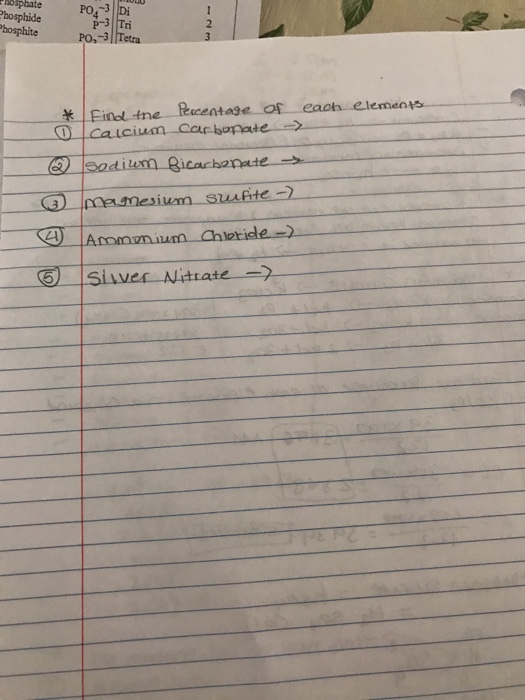 Phosphate PO4-3 Di 1
Phosphide P-3 Tri 2
Phosphite PO3-3 Tetra 3
* Find the Percentage of each elements
① Calcium Carbonate →
② Sodium Bicarbonate →
③ Magnesium sulfite →
④ Ammonium Chloride →
⑤ Silver Nitrate →